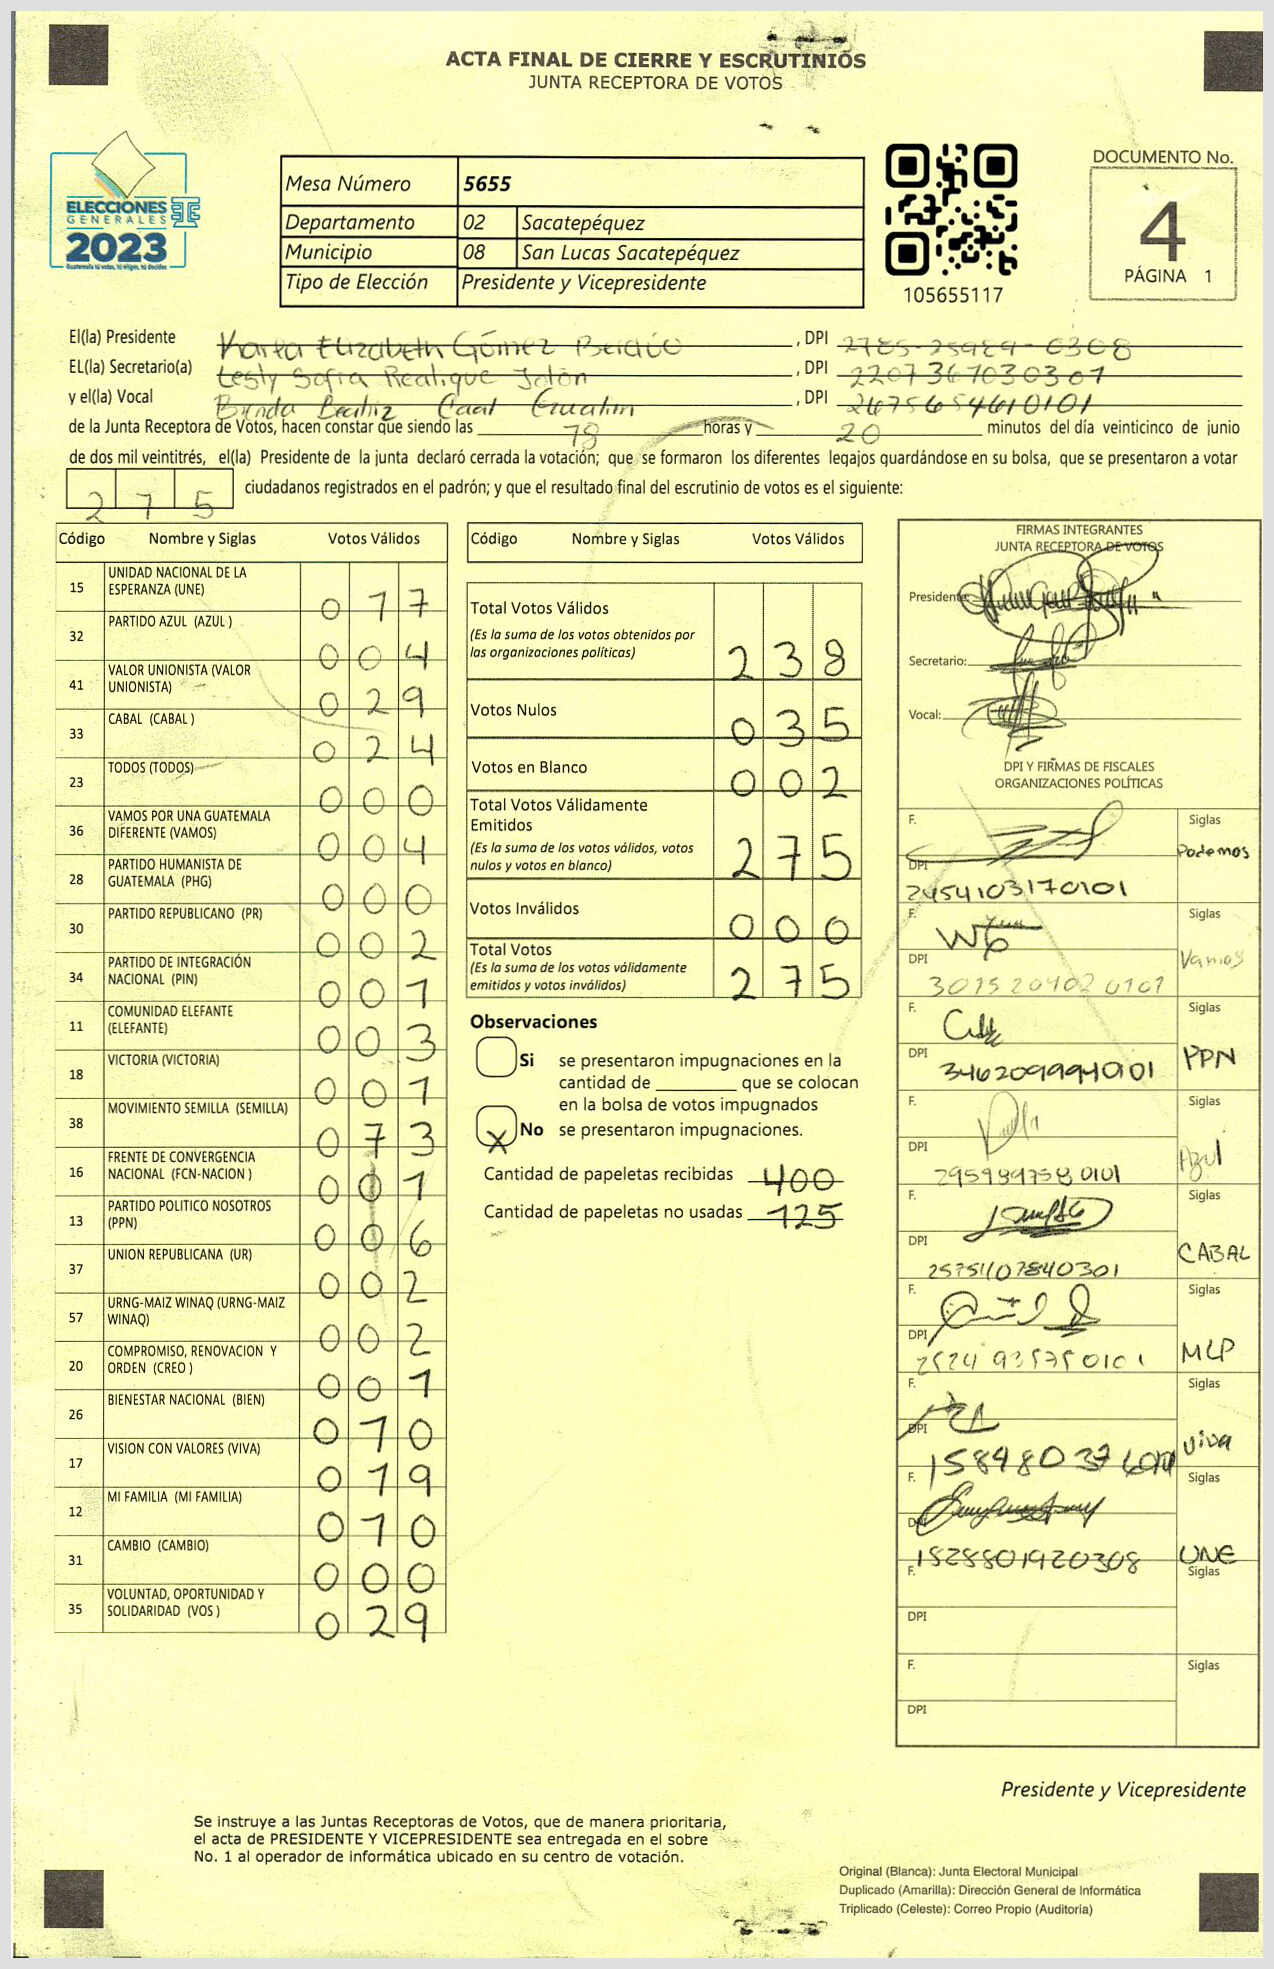 ACTA FINAL DE CIERRE Y ESCRUTINIOS
JUNTA RECEPTORA DE VOTOS
ELECCIONES
GENERALES
2023
Guatemala tú votas, tú eliges, tú decides
Mesa Número 5655
Departamento 02 Sacatepéquez
Municipio 08 San Lucas Sacatepéquez
Tipo de Elección Presidente y Vicepresidente
105655117
DOCUMENTO No.
4
PÁGINA 1
El(la) Presidente Karla Elizabeth Gómez , DPI 2785-25989-0308
EL(la) Secretario(a) Lesly Sofia Realique Jolón , DPI 2207367030307
y el(la) Vocal Beatriz Caal , DPI 2675654610101
de la Junta Receptora de Votos, hacen constar que siendo las 18 horas y 20 minutos del día veinticinco de junio
de dos mil veintitrés, el(la) Presidente de la junta declaró cerrada la votación; que se formaron los diferentes legajos guardándose en su bolsa, que se presentaron a votar
275 ciudadanos registrados en el padrón; y que el resultado final del escrutinio de votos es el siguiente:
Código Nombre y Siglas Votos Válidos
15 UNIDAD NACIONAL DE LA ESPERANZA (UNE) 017
32 PARTIDO AZUL (AZUL ) 004
41 VALOR UNIONISTA (VALOR UNIONISTA) 029
33 CABAL (CABAL ) 024
23 TODOS (TODOS) 000
36 VAMOS POR UNA GUATEMALA DIFERENTE (VAMOS) 004
28 PARTIDO HUMANISTA DE GUATEMALA (PHG) 000
30 PARTIDO REPUBLICANO (PR) 002
34 PARTIDO DE INTEGRACIÓN NACIONAL (PIN) 001
11 COMUNIDAD ELEFANTE (ELEFANTE) 003
18 VICTORIA (VICTORIA) 001
38 MOVIMIENTO SEMILLA (SEMILLA) 073
16 FRENTE DE CONVERGENCIA NACIONAL (FCN-NACION ) 001
13 PARTIDO POLITICO NOSOTROS (PPN) 006
37 UNION REPUBLICANA (UR) 002
57 URNG-MAIZ WINAQ (URNG-MAIZ WINAQ) 002
20 COMPROMISO, RENOVACION Y ORDEN (CREO ) 001
26 BIENESTAR NACIONAL (BIEN) 010
17 VISION CON VALORES (VIVA) 019
12 MI FAMILIA (MI FAMILIA) 010
31 CAMBIO (CAMBIO) 000
35 VOLUNTAD, OPORTUNIDAD Y SOLIDARIDAD (VOS ) 029
Código Nombre y Siglas Votos Válidos
Total Votos Válidos 238
(Es la suma de los votos obtenidos por
las organizaciones políticas)
Votos Nulos 035
Votos en Blanco 002
Total Votos Válidamente
Emitidos 275
(Es la suma de los votos válidos, votos
nulos y votos en blanco)
Votos Inválidos 000
Total Votos 275
(Es la suma de los votos válidamente
emitidos y votos inválidos)
Observaciones
Si se presentaron impugnaciones en la
cantidad de ________ que se colocan
en la bolsa de votos impugnados
X No se presentaron impugnaciones.
Cantidad de papeletas recibidas 400
Cantidad de papeletas no usadas 125
FIRMAS INTEGRANTES
JUNTA RECEPTORA DE VOTOS
Presidente:
Secretario:
Vocal:
DPI Y FIRMAS DE FISCALES
ORGANIZACIONES POLÍTICAS
F. Siglas
DPI Podemos
2454103170101
F. Siglas
DPI Vamos
3015204020101
F. Siglas
DPI PPN
3462099940101
F. Siglas
DPI Azul
2959897580101
F. Siglas
DPI CABAL
25751107840301
F. Siglas
DPI MLP
2524935750101
F. Siglas
DPI Viva
F. Siglas
DPI UNE
1528801920308
F. Siglas
DPI
F. Siglas
DPI
Presidente y Vicepresidente
Se instruye a las Juntas Receptoras de Votos, que de manera prioritaria,
el acta de PRESIDENTE Y VICEPRESIDENTE sea entregada en el sobre
No. 1 al operador de informática ubicado en su centro de votación.
Original (Blanca): Junta Electoral Municipal
Duplicado (Amarilla): Dirección General de Informática
Triplicado (Celeste): Correo Propio (Auditoria)